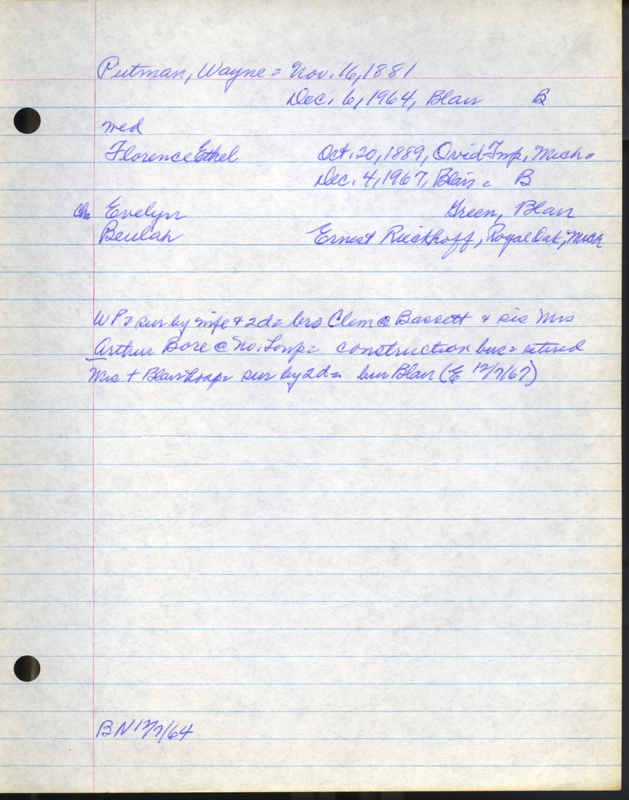 Putman, Wayne = Nov. 16, 1881
Dec. 6, 1964, Blair B
med
Florence Ethel Oct. 20, 1889, Ovid Twp, Mich.
Dec. 4, 1967, Blair = B
Ch Evelyn Green, Blair
Beulah Ernest Rieckhoff, Royal Oak, Mich
WP = sur by wife & 2d = bro Clem @ Bassett & sis Mrs
Arthur Bose @ No. Loup = construction bus = retired
Mrs + Blair hosp = sur by 2d = bur Blair (E 12/7/67)
BN 12/7/64